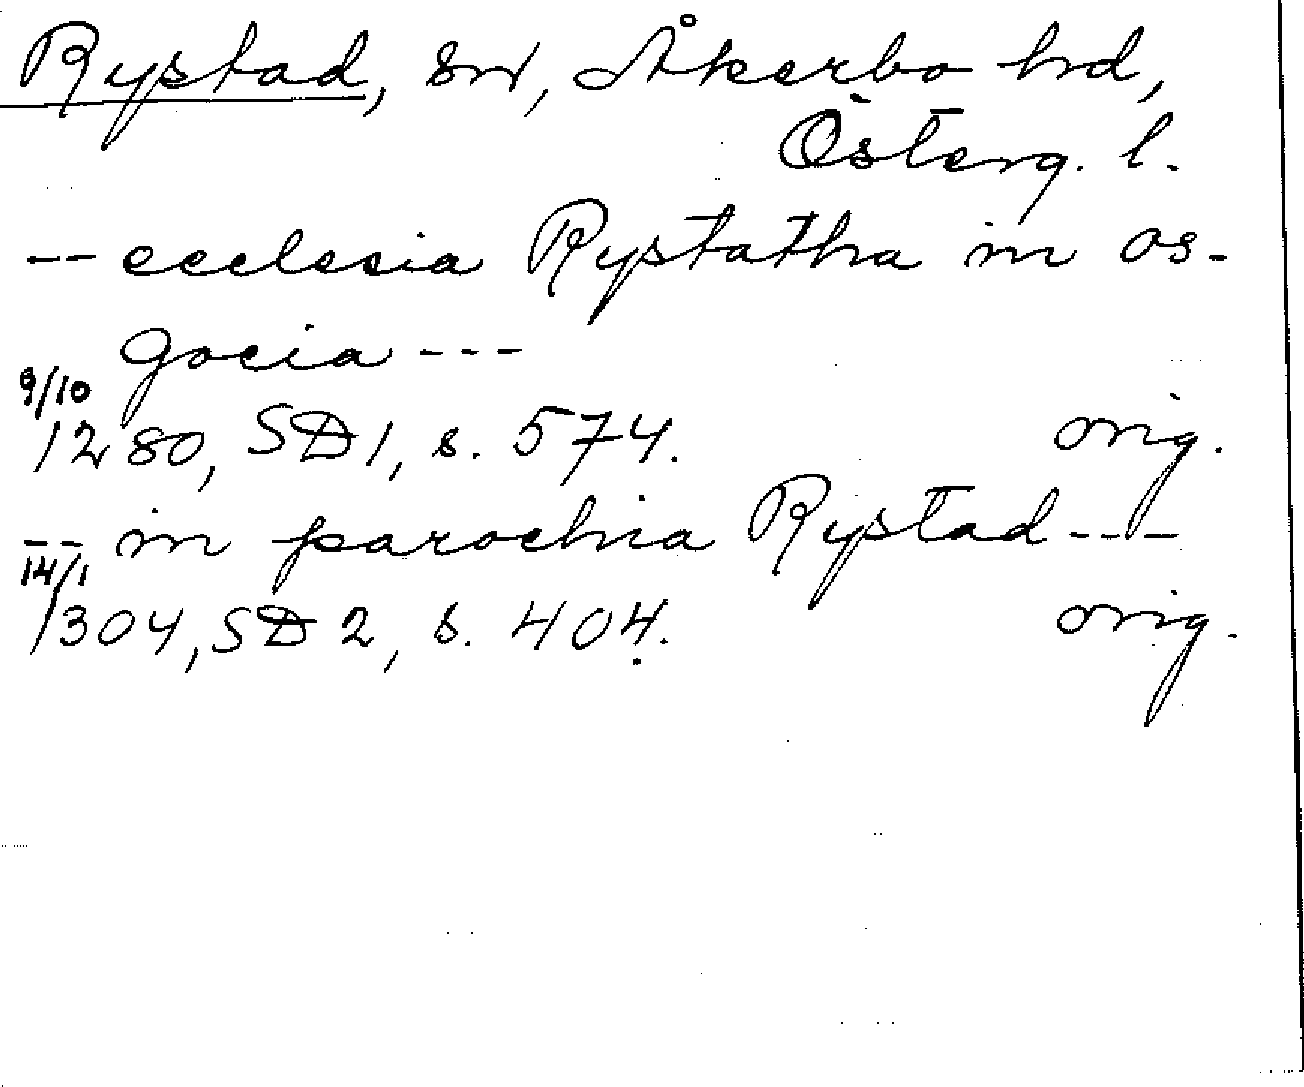 Rystad, sn, Åkerbo hd,
Österg. l.
-- ecclesia Rystatha in os-
gocia ---
9/10
1280, SD 1, s. 574. orig.
-- in parochia Rystad ---
14/1
1304, SD 2, s. 404. orig.